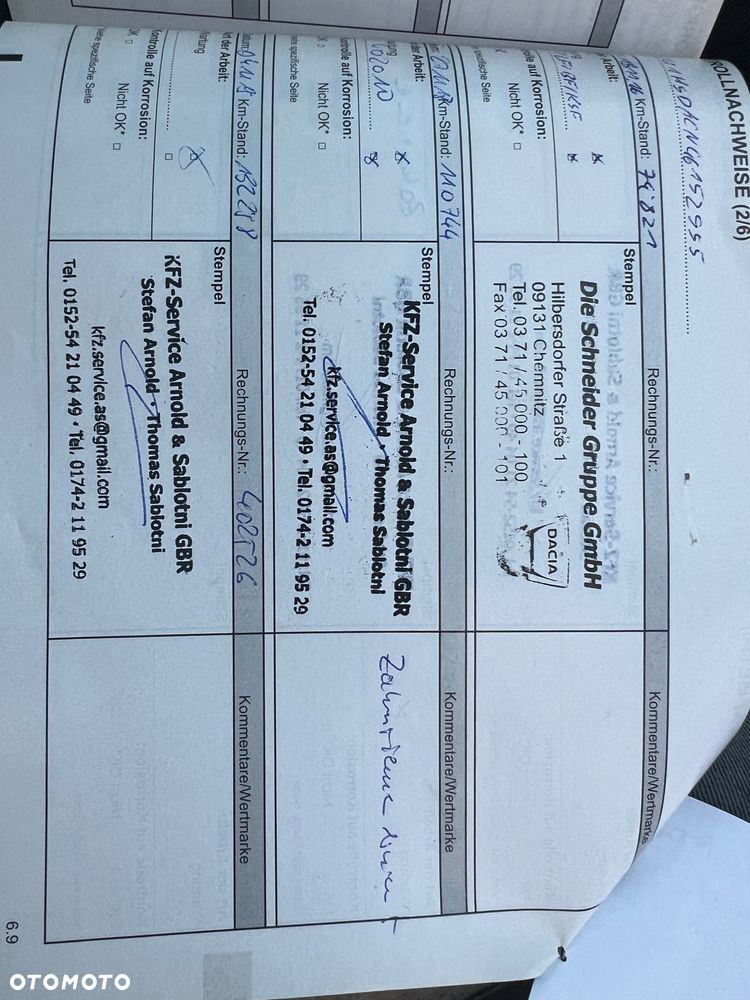 ROLLNACHWEISE (2/6)
Km-Stand: 79'821
Rechnungs-Nr.:
Kommentare/Wertmarke
Arbeit:
Nicht OK*
Stempel
Die Schneider Gruppe GmbH
Hilbersdorfer Straße 1
09131 Chemnitz
Tel. 03 71 / 45 000 - 100
Fax 03 71 / 45 000 - 101
DACIA
Km-Stand: 110744
Rechnungs-Nr.:
Kommentare/Wertmarke
Arbeit:
ntrolle auf Korrosion:
Nicht OK*
Stempel
KFZ-Service Arnold & Sablotni GBR
Stefan Arnold • Thomas Sablotni
kfz.service.as@gmail.com
Tel. 0152-54 21 04 49 • Tel. 0174-2 11 95 29
Km-Stand: 132288
Rechnungs-Nr.: 402526
Kommentare/Wertmarke
der Arbeit:
artung
ontrolle auf Korrosion:
Nicht OK*
eite spezifische Seite
Stempel
KFZ-Service Arnold & Sablotni GBR
Stefan Arnold • Thomas Sablotni
kfz.service.as@gmail.com
Tel. 0152-54 21 04 49 • Tel. 0174-2 11 95 29
6.9
OTOMOTO